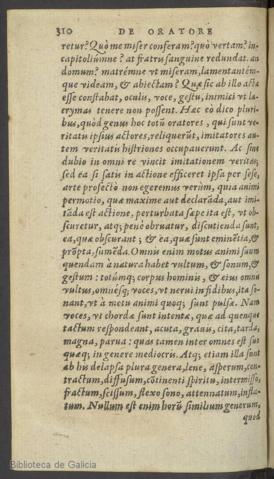 310 DE ORATORE
retur? Quò me miser conferam? quò vertam? in-
capitoliúmne? at fratris sanguine redundat. an
domum? matrémne vt miseram, lamentantém-
que videam, & abiectam? Quæ sic ab illo acta
esse constabat, oculis, voce, gestu, inimici vt la-
crymas tenere non possent. Hæc eò dico pluri-
bus, quòd genus hoc totũ oratores, qui sunt ve-
ritatis ipsius actores, reliquerũt, imitatores au-
tem veritatis histriones occupauerunt. Ac sine
dubio in omni re vincit imitationem veritas;
sed ea si satis in actione efficeret ipsa per sese,
arte profectò non egeremus verùm, quia animi
permotio, quæ maxime aut declarãda, aut imi-
tãda est actione, perturbata sæpe ita est, vt ob-
scuretur, atq; penè obruatur, discutienda sunt,
ea, quæ obscurant; & ea, quæ sunt eminẽtia, &
prõpta, sumẽda. Omnis enim motus animi suum
quendam à natura habet vultum, & sonum, &
gestum: totúmq; corpus hominis, & eius omnis
vultus, omnésq; voces, vt nerui in fidibus, ita so-
nant, vt à motu animi quoq; sunt pulsæ. Nam
voces, vt chordæ sunt intentæ, quæ ad quenque
tactum respondeant, acuta, grauis, cita, tarda,
magna, parua: quas tamen inter omnes est suo
quæq; in genere mediocris. Atq; etiam illa sunt
ab his delapsa plura genera, lene, asperum, con-
tractum, diffusum, cõtinenti spiritu, intermisso,
fractum, scissum, flexo sono, attennatum, infla-
tum. Nullum est enim horũ similium generum,
quod
Biblioteca de Galicia